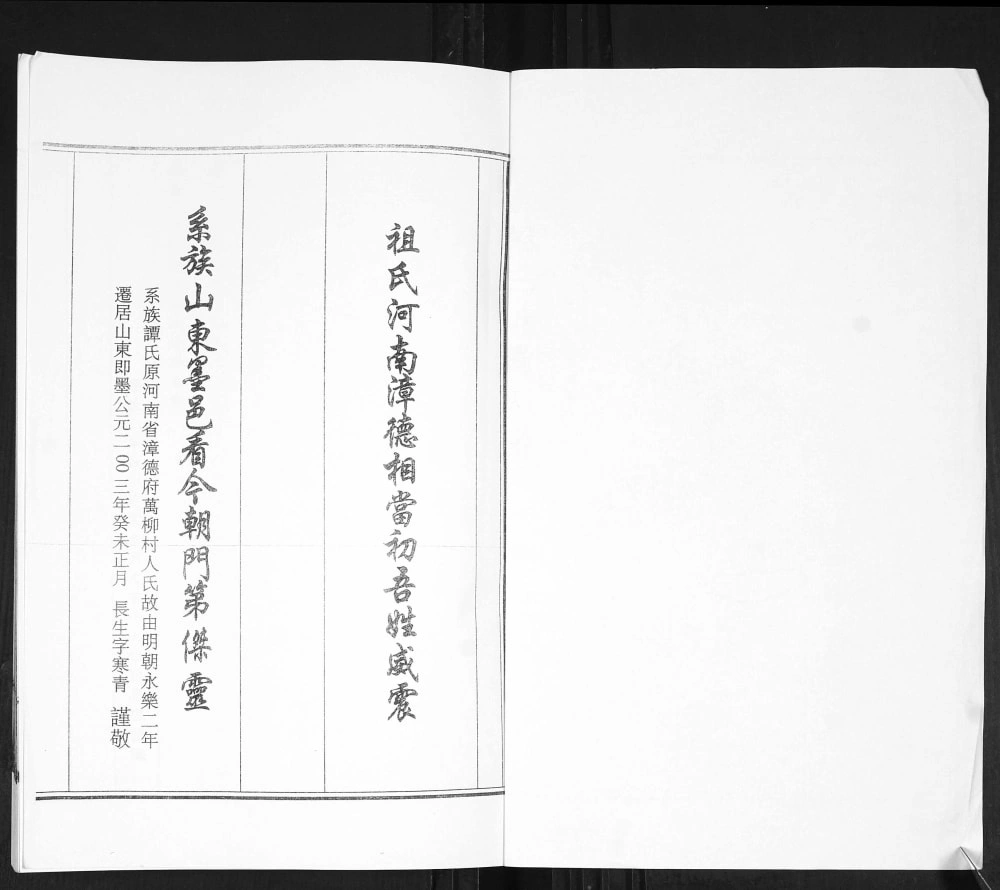 祖氏河南漳德相當初吾姓威震
系族山東墨邑看今朝門第傑靈
系族譚氏原河南省漳德府萬柳村人氏故由明朝永樂二年
遷居山東即墨公元二00三年癸未正月 長生字寒青 謹敬